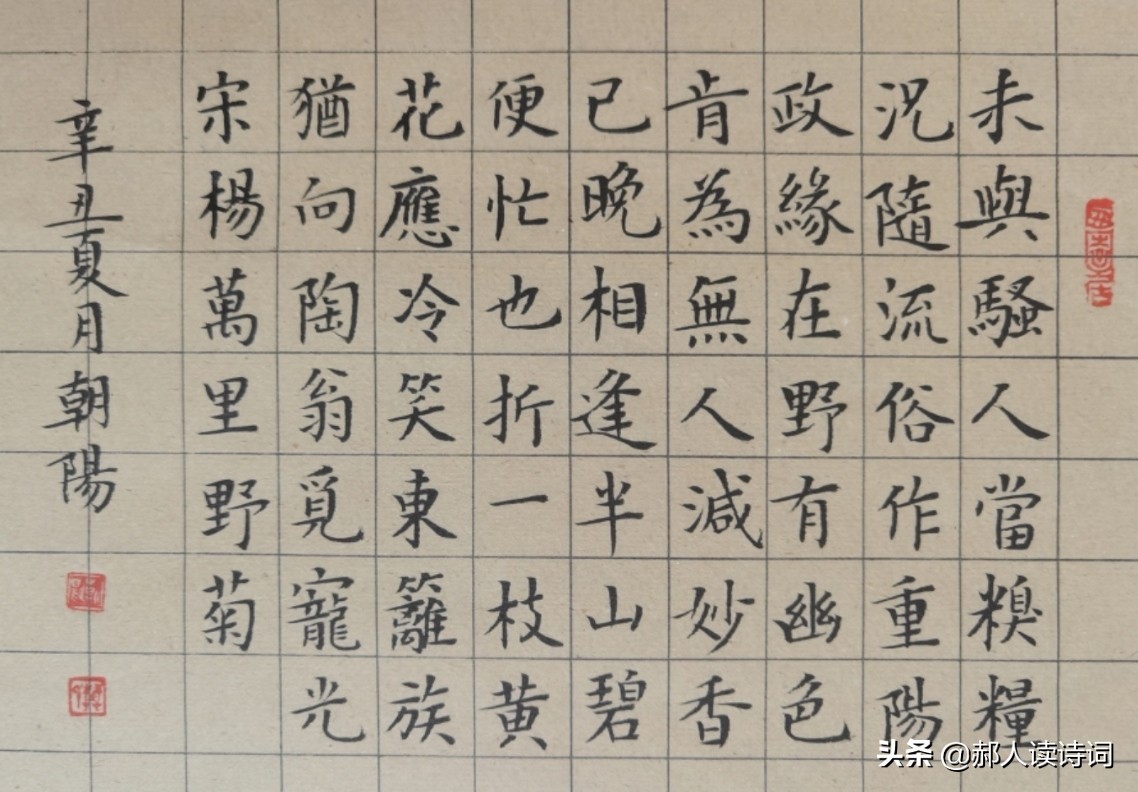 未與騷人當糗糧
況隨流俗作重陽
政緣在野有幽色
肯為無人減妙香
已晚相逢半山碧
便忙也折一枝黄
花應冷笑東籬族
猶向陶翁覓寵光
宋楊萬里野菊
辛丑夏月朝陽
头条 @郝人读诗词